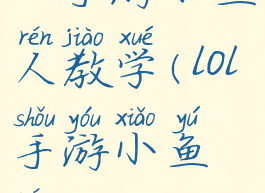 手游小鱼
rén jiào xué
人教学(lol
shǒu yóu xiǎo yú
手游小鱼